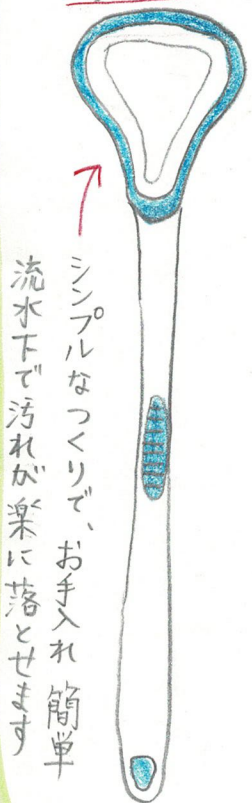 シンプルなつくりで、お手入れ簡単
流水下で汚れが楽に落とせます